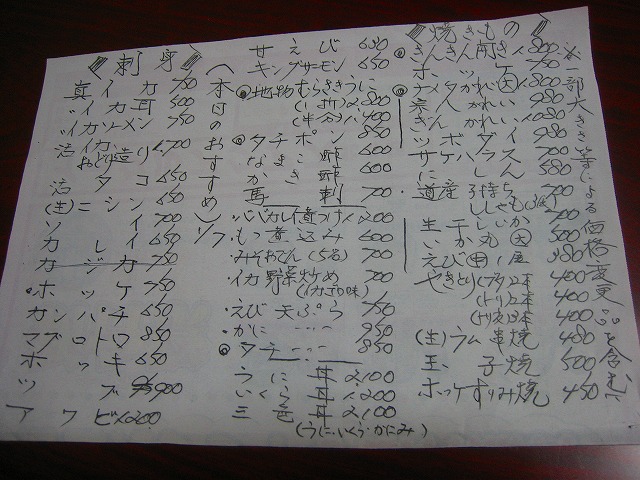 《刺身》
真イカ 750
〃イカ耳 500
〃イカソーメン 750
活イカおどり造り 1,700
活タコ 650
(生)ニシン 650
ソイ 700
カレイ 650
カジカ 750
・ホッケ 750
カンパチ 650
マグロトロ 850
ホッキ 650
ツブ 900
アワビ 1,200
(本日のおすすめ)
甘えび 650
キングサーモン 650
◎地物むらさきうに
(1折) 2,800
(半分) 1,400
◎タチポン 700
・なまこ酢 600
かき酢 600
馬刺 700
・ババカレイ煮つけ 1,200
・もつ煮込み 600
・みそおでん(5品) 700
・イカ野菜炒め 700
(イカゴロ味)
・えび天ぷら 750
・かに〃 950
◎タチ〃 850
うに丼 2,100
いくら丼 1,200
三色丼 2,100
(うに・いくら・かにみ)
《焼きもの》
◎きんき開き 1,800
ホッケ 750
◎ナメタかれい 1,800
宗八かれい 700
ぎんかれい 1,080
ツボダイ 980
サケハラス 580
・道産子持ちししゃも 700
生干しいか 700
いか丸 500
えび 380
やきとり 2本 400
(トリ) 2本 400
400
(生)ラム串焼 480
玉子焼 500
ホッケすりみ焼 450
※一部大きさ等による価格変更品を含む